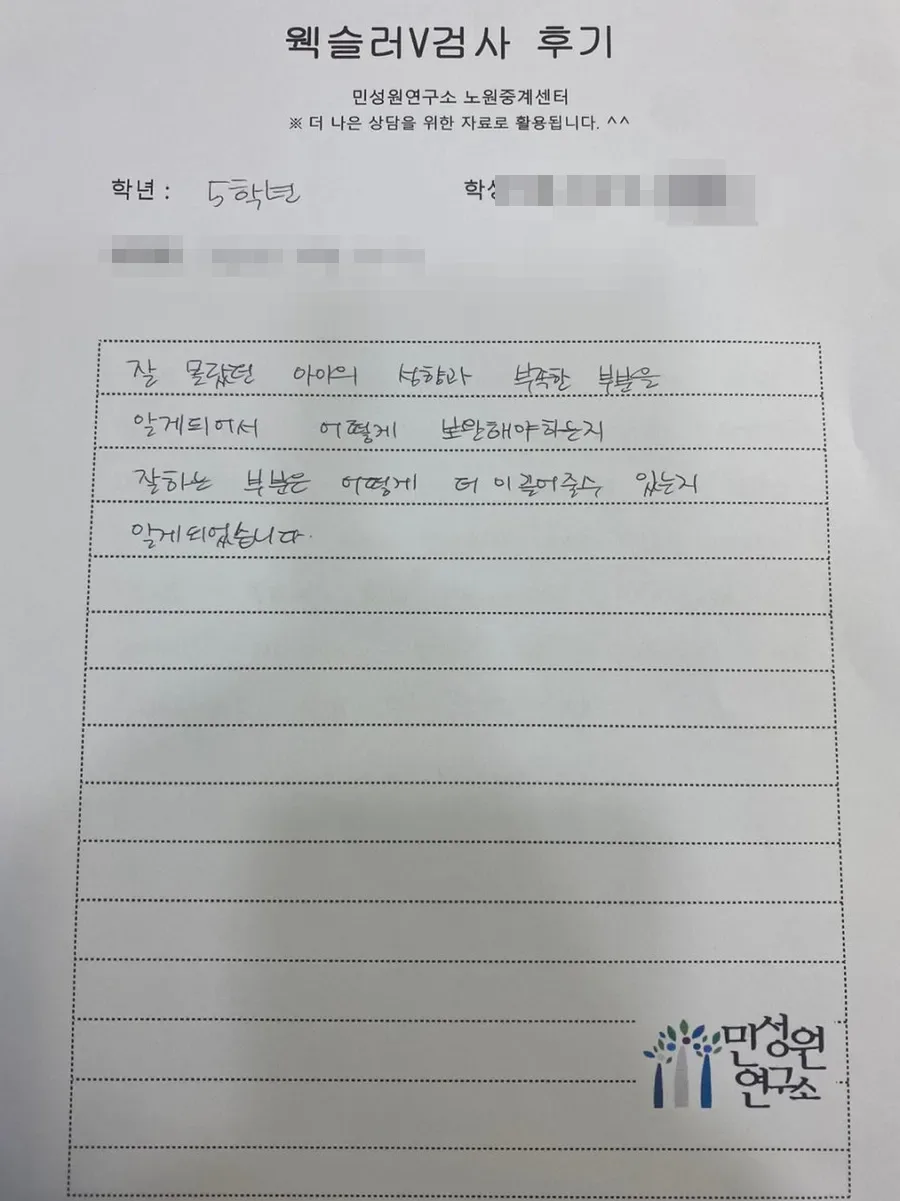 웩슬러V검사 후기
민성원연구소 노원중계센터
※ 더 나은 상담을 위한 자료로 활용됩니다. ^^
학년 : 5학년
잘 몰랐던 아이의 성향과 부족한 부분을
알게되어서 어떻게 보완해야하는지
잘하는 부분은 어떻게 더 이끌어줄수 있는지
알게되었습니다.
민성원
연구소